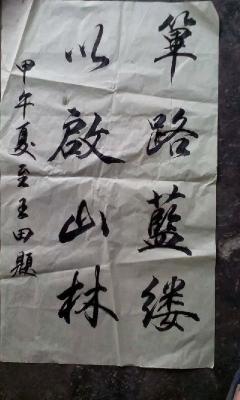 箪路藍缕
以啟山林
甲午夏至王田題